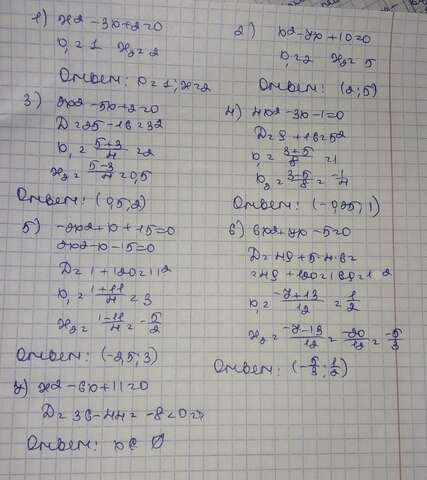 1) x2 - 3x + 2 = 0
x1 = 1 x2 = 2
Ответ: x = 1; x = 2
2) x2 - 7x + 10 = 0
x1 = 2 x2 = 5
Ответ: (2; 5)
3) 2x2 - 5x + 2 = 0
D = 25 - 16 = 32
x1 = 5+3/4 = 2
x2 = 5-3/4 = 0,5
Ответ: (0,5; 2)
4) 4x2 - 3x - 1 = 0
D = 9 + 16 = 52
x1 = 3+5/8 = 1
x2 = 3-5/8 = -1/4
Ответ: (-0,25; 1)
5) -2x2 + x + 15 = 0
2x2 - x - 15 = 0
D = 1 + 120 = 112
x1 = 1+11/4 = 3
x2 = 1-11/4 = -5/2
Ответ: (-2,5; 3)
6) 6x2 + 7x - 5 = 0
D = 49 + 5·4·6 =
= 49 + 120 = 169 = 1 2
x1 = -7+13/12 = 1/2
x2 = -7-13/12 = -20/12 = -5/3
Ответ: (-5/3; 1/2)
7) x2 - 6x + 11 = 0
D = 36 - 44 = -8 < 0 =>
Ответ: x ∈ Ø